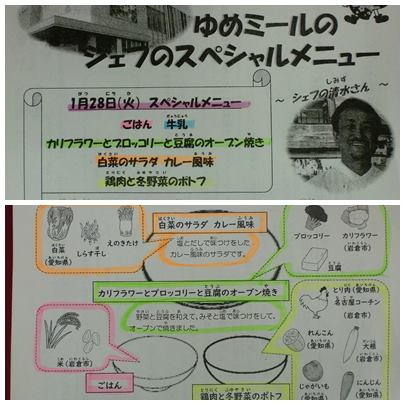 ゆめミールの
シェフのスペシャルメニュー
1月28日(火) スペシャルメニュー
ごはん 牛乳
カリフラワーとブロッコリーと豆腐のオーブン焼き
白菜のサラダ カレー風味
鶏肉と冬野菜のポトフ
～ シェフの清水さん ～
白菜のサラダ カレー風味
塩とだしで味つけをした
カレー風味のサラダです。
白菜
(愛知県)
しらす干し
えのきたけ
ブロッコリー
カリフラワー
(岩倉市)
豆腐
カリフラワーとブロッコリーと豆腐のオーブン焼き
野菜と豆腐を和えて、みそと塩で味つけをして、
オーブンで焼きました。
とり肉(愛知県)
名古屋コーチン
(岩倉市)
れんこん
(愛知県)
大根
(岩倉市)
じゃがいも
にんじん
(愛知県)
米(岩倉市)
ごはん
鶏肉と冬野菜のポトフ